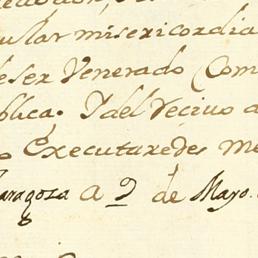 ular misericordia
ser Venerado (Com
blica. Y del Vecino a
Executaredes me
aragoza a 2 de Mayo.